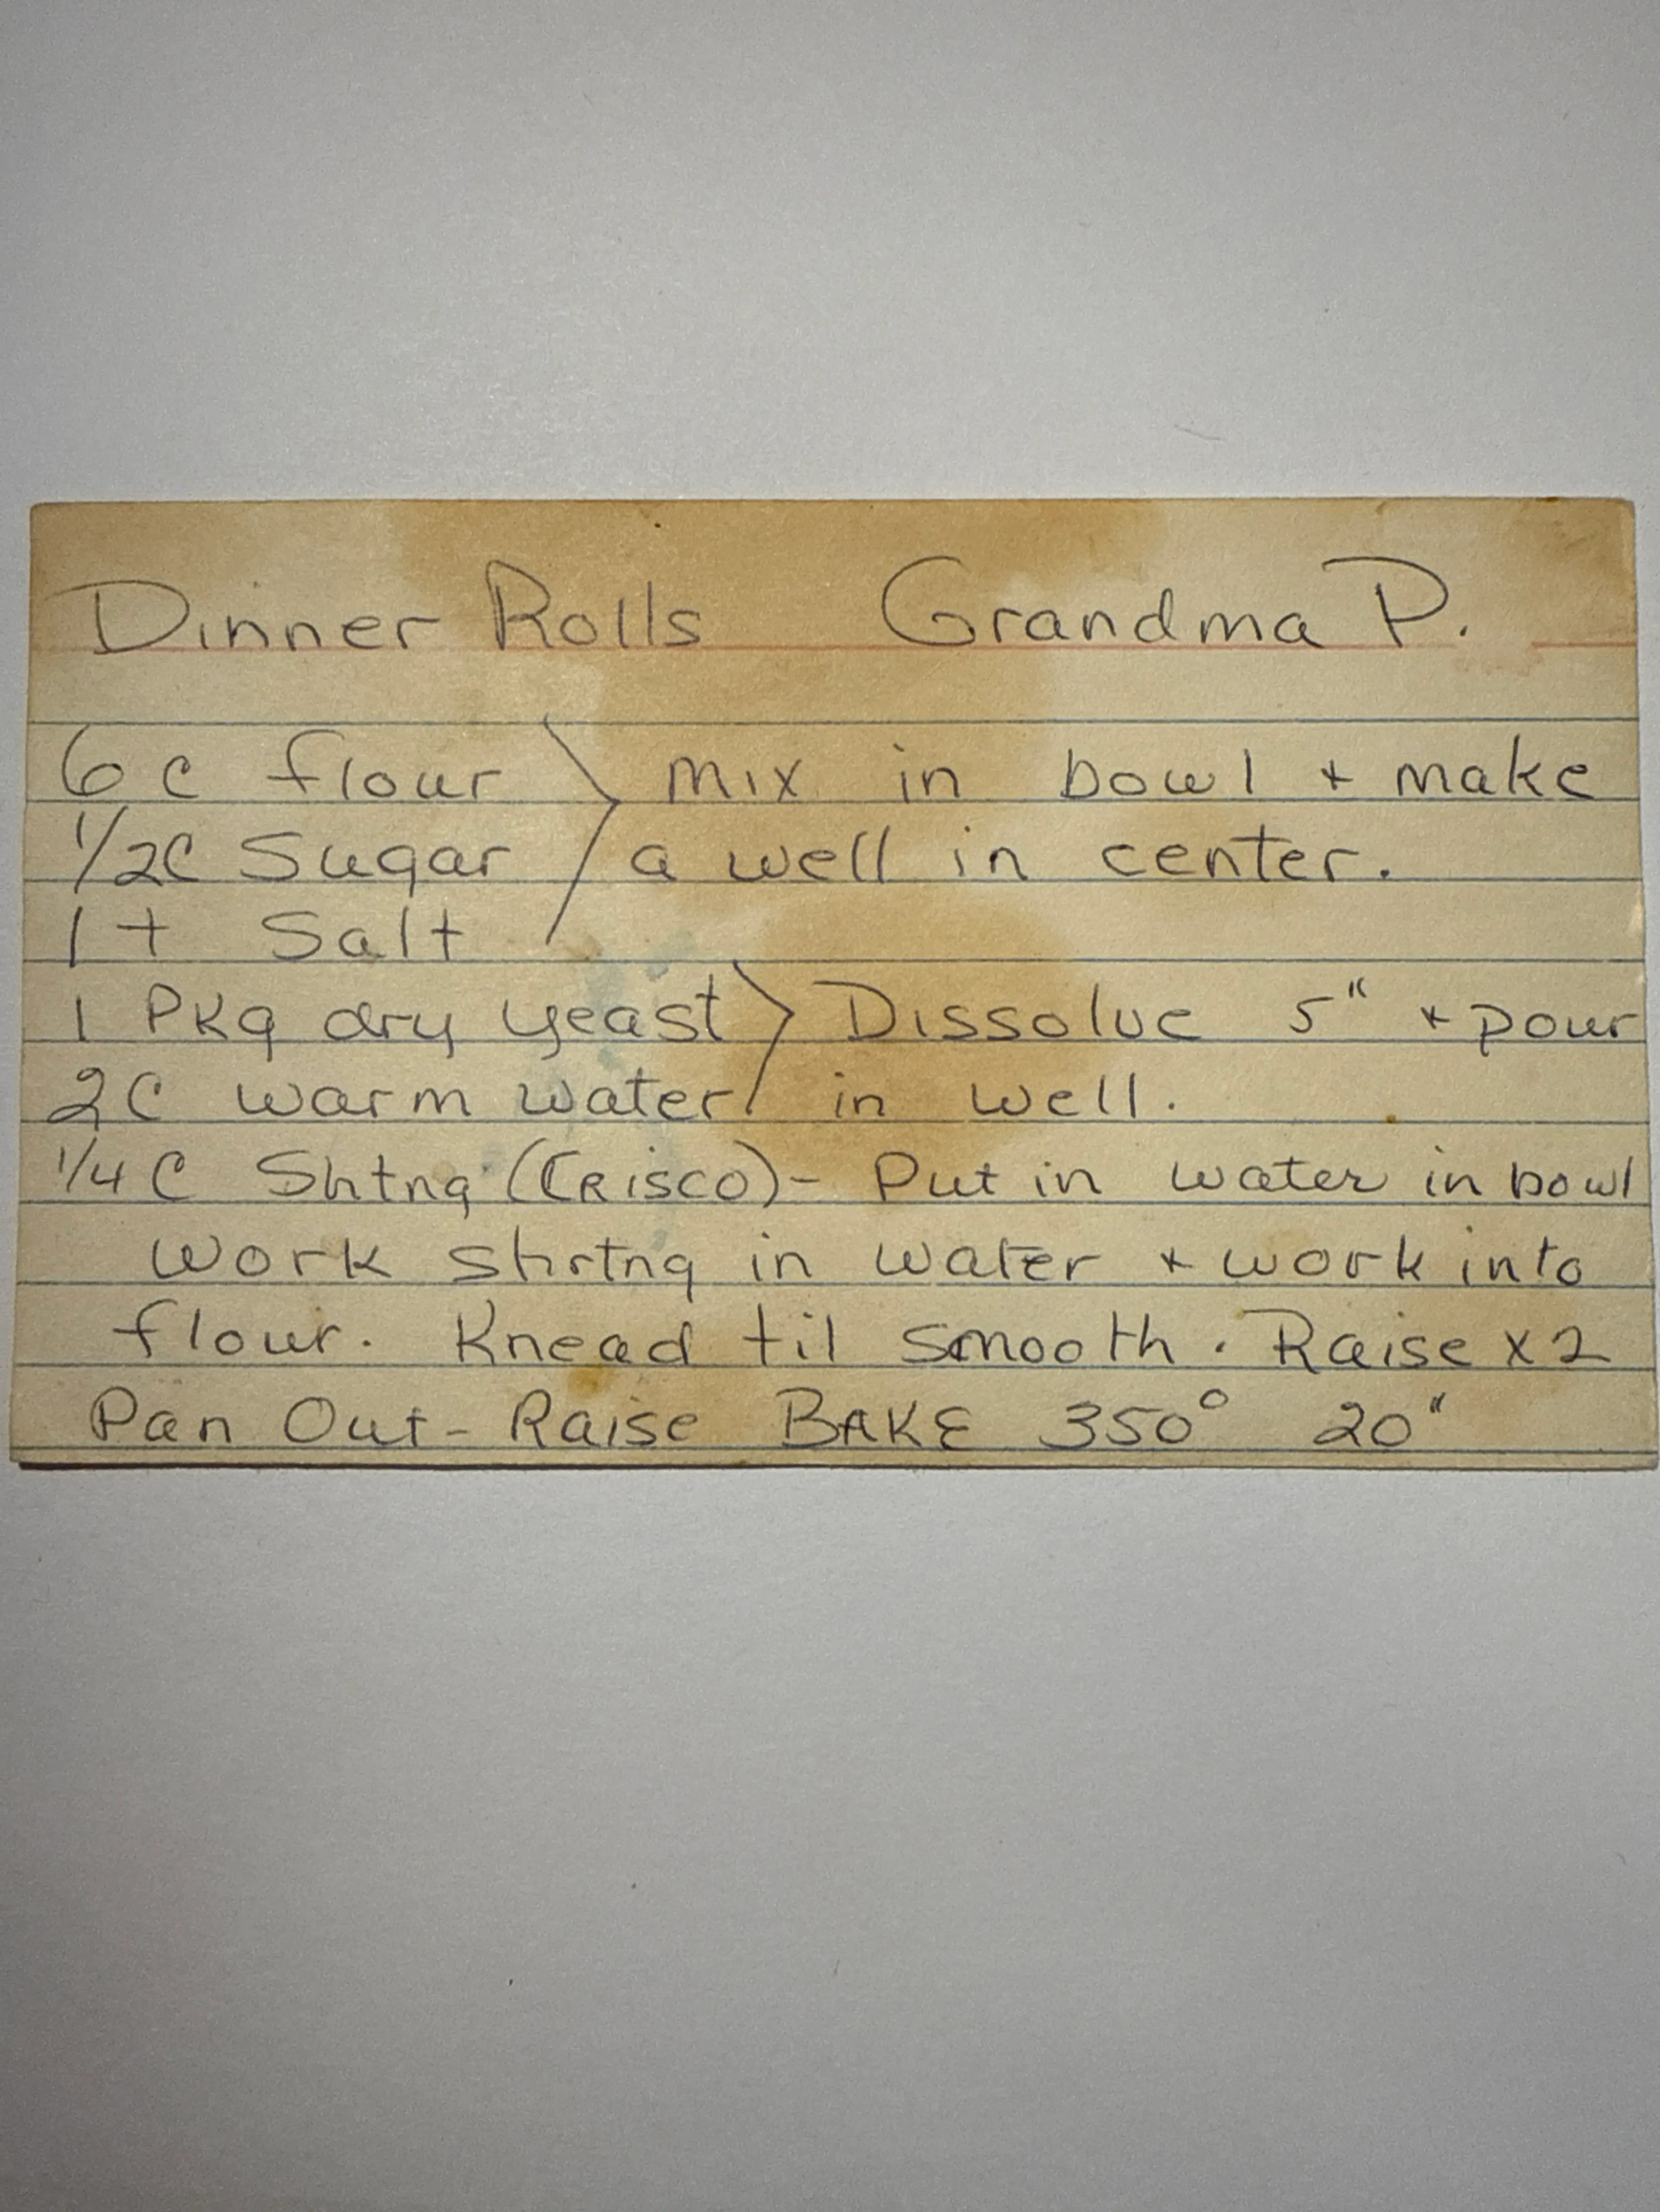 Dinner Rolls Grandma P.
6 c flour > mix in bowl + make
1/2C Sugar a well in center.
1 t Salt
1 Pkg dry yeast > Dissolve 5" + pour
2C warm water in well.
1/4 C Shtng (CRISCO) - Put in water in bowl
work shrtng in water + work into
flour. Knead til smooth. Raise x 2
Pan Out - Raise BAKE 350° 20"